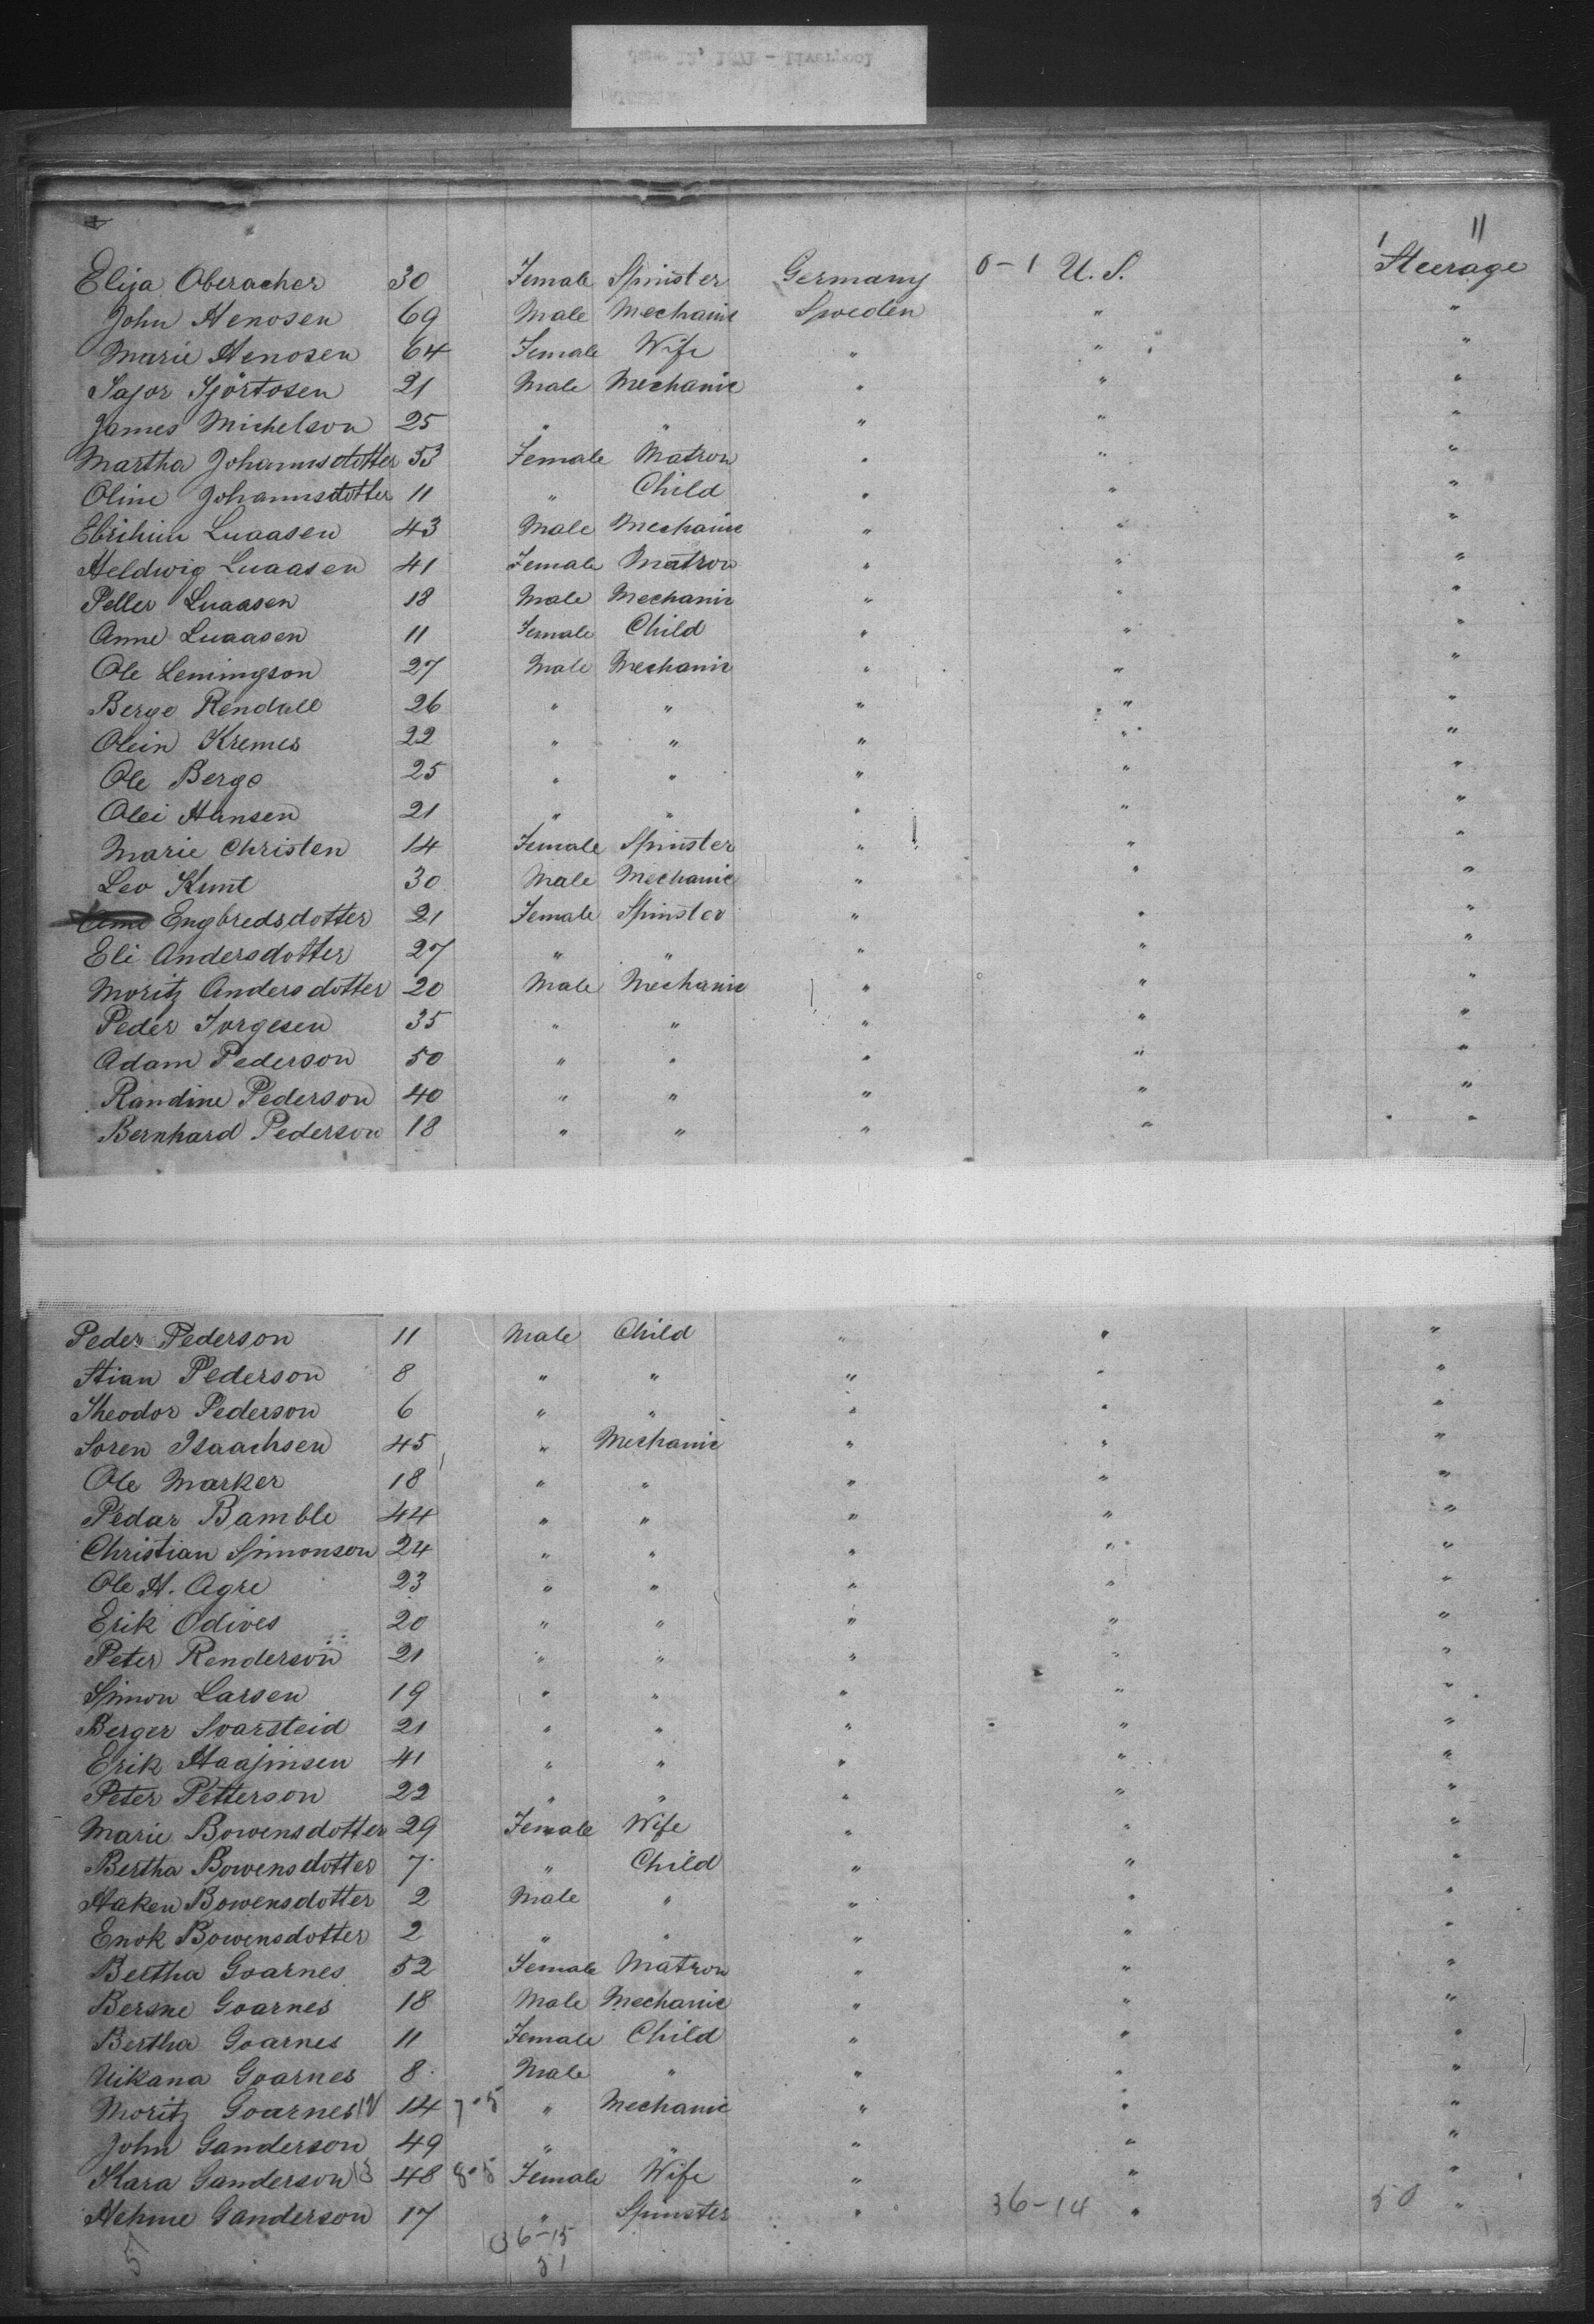 11
Eliza Oberacher 30 Female Spinster Germany 0-1 U.S. 1 Steerage
John Henosen 69 Male Mechanic Sweden " "
Marie Henosen 64 Female Wife " " "
Sajor Sjörtosen 21 Male Mechanic " " "
James Michelson 25 " " " " "
Martha Johannsdotter 53 Female Matron " " "
Oline Johannsdotter 11 " Child " " "
Luaasen 43 Male Mechanic " " "
Heldwig Luaasen 41 Female Matron " " "
Peller Luaasen 18 Male Mechanic " " "
Anne Luaasen 11 Female Child " " "
Ole Lemingson 27 Male Mechanic " " "
Berge Rendall 26 " " " " "
Olein Kremes 22 " " " " "
Ole Berge 25 " " " " "
Olei Hansen 21 " " " " "
Marie Christen 14 Female Spinster " " "
Leo Kunt 30 Male Mechanic " " "
Engbredsdotter 21 Female Spinster " " "
Eli Andersdotter 27 " " " " "
Moritz Andersdotter 20 Male Mechanic " " "
Peder Jorgesen 35 " " " " "
Adam Pederson 50 " " " " "
Randine Pederson 40 " " " " "
Bernhard Pederson 18 " " " " "
Peder Pederson 11 Male Child " " "
Stian Pederson 8 " " " " "
Theodor Pederson 6 " " " " "
Soren Isaachsen 45 " Mechanic " " "
Ole Marker 18 " " " " "
Pedar Bamble 44 " " " " "
Christian Simonson 24 " " " " "
Ole H. Agre 23 " " " " "
Erik Odives 20 " " " " "
Peter Renderson 21 " " " " "
Simon Larsen 19 " " " " "
Berger Svarsteid 21 " " " " "
Erik Haajinsen 41 " " " " "
Peter Petterson 22 " " " " "
Marie Bowensdotter 29 Female Wife " " "
Bertha Bowensdotter 7 " Child " " "
Haken Bowensdotter 2 Male " " " "
Enok Bowensdotter 2 " " " " "
Bertha Goarnes 52 Female Matron " " "
Bersne Goarnes 18 Male Mechanic " " "
Bertha Goarnes 11 Female Child " " "
Nikana Goarnes 8 Male " " " "
Moritz Goarnes 14 7-5 " Mechanic " " "
John Ganderson 49 " " " " "
Kara Ganderson 13 48 8-5 Female Wife " " "
Hehme Ganderson 17 " Spinster " 36-14 " 50 "
36-15
51